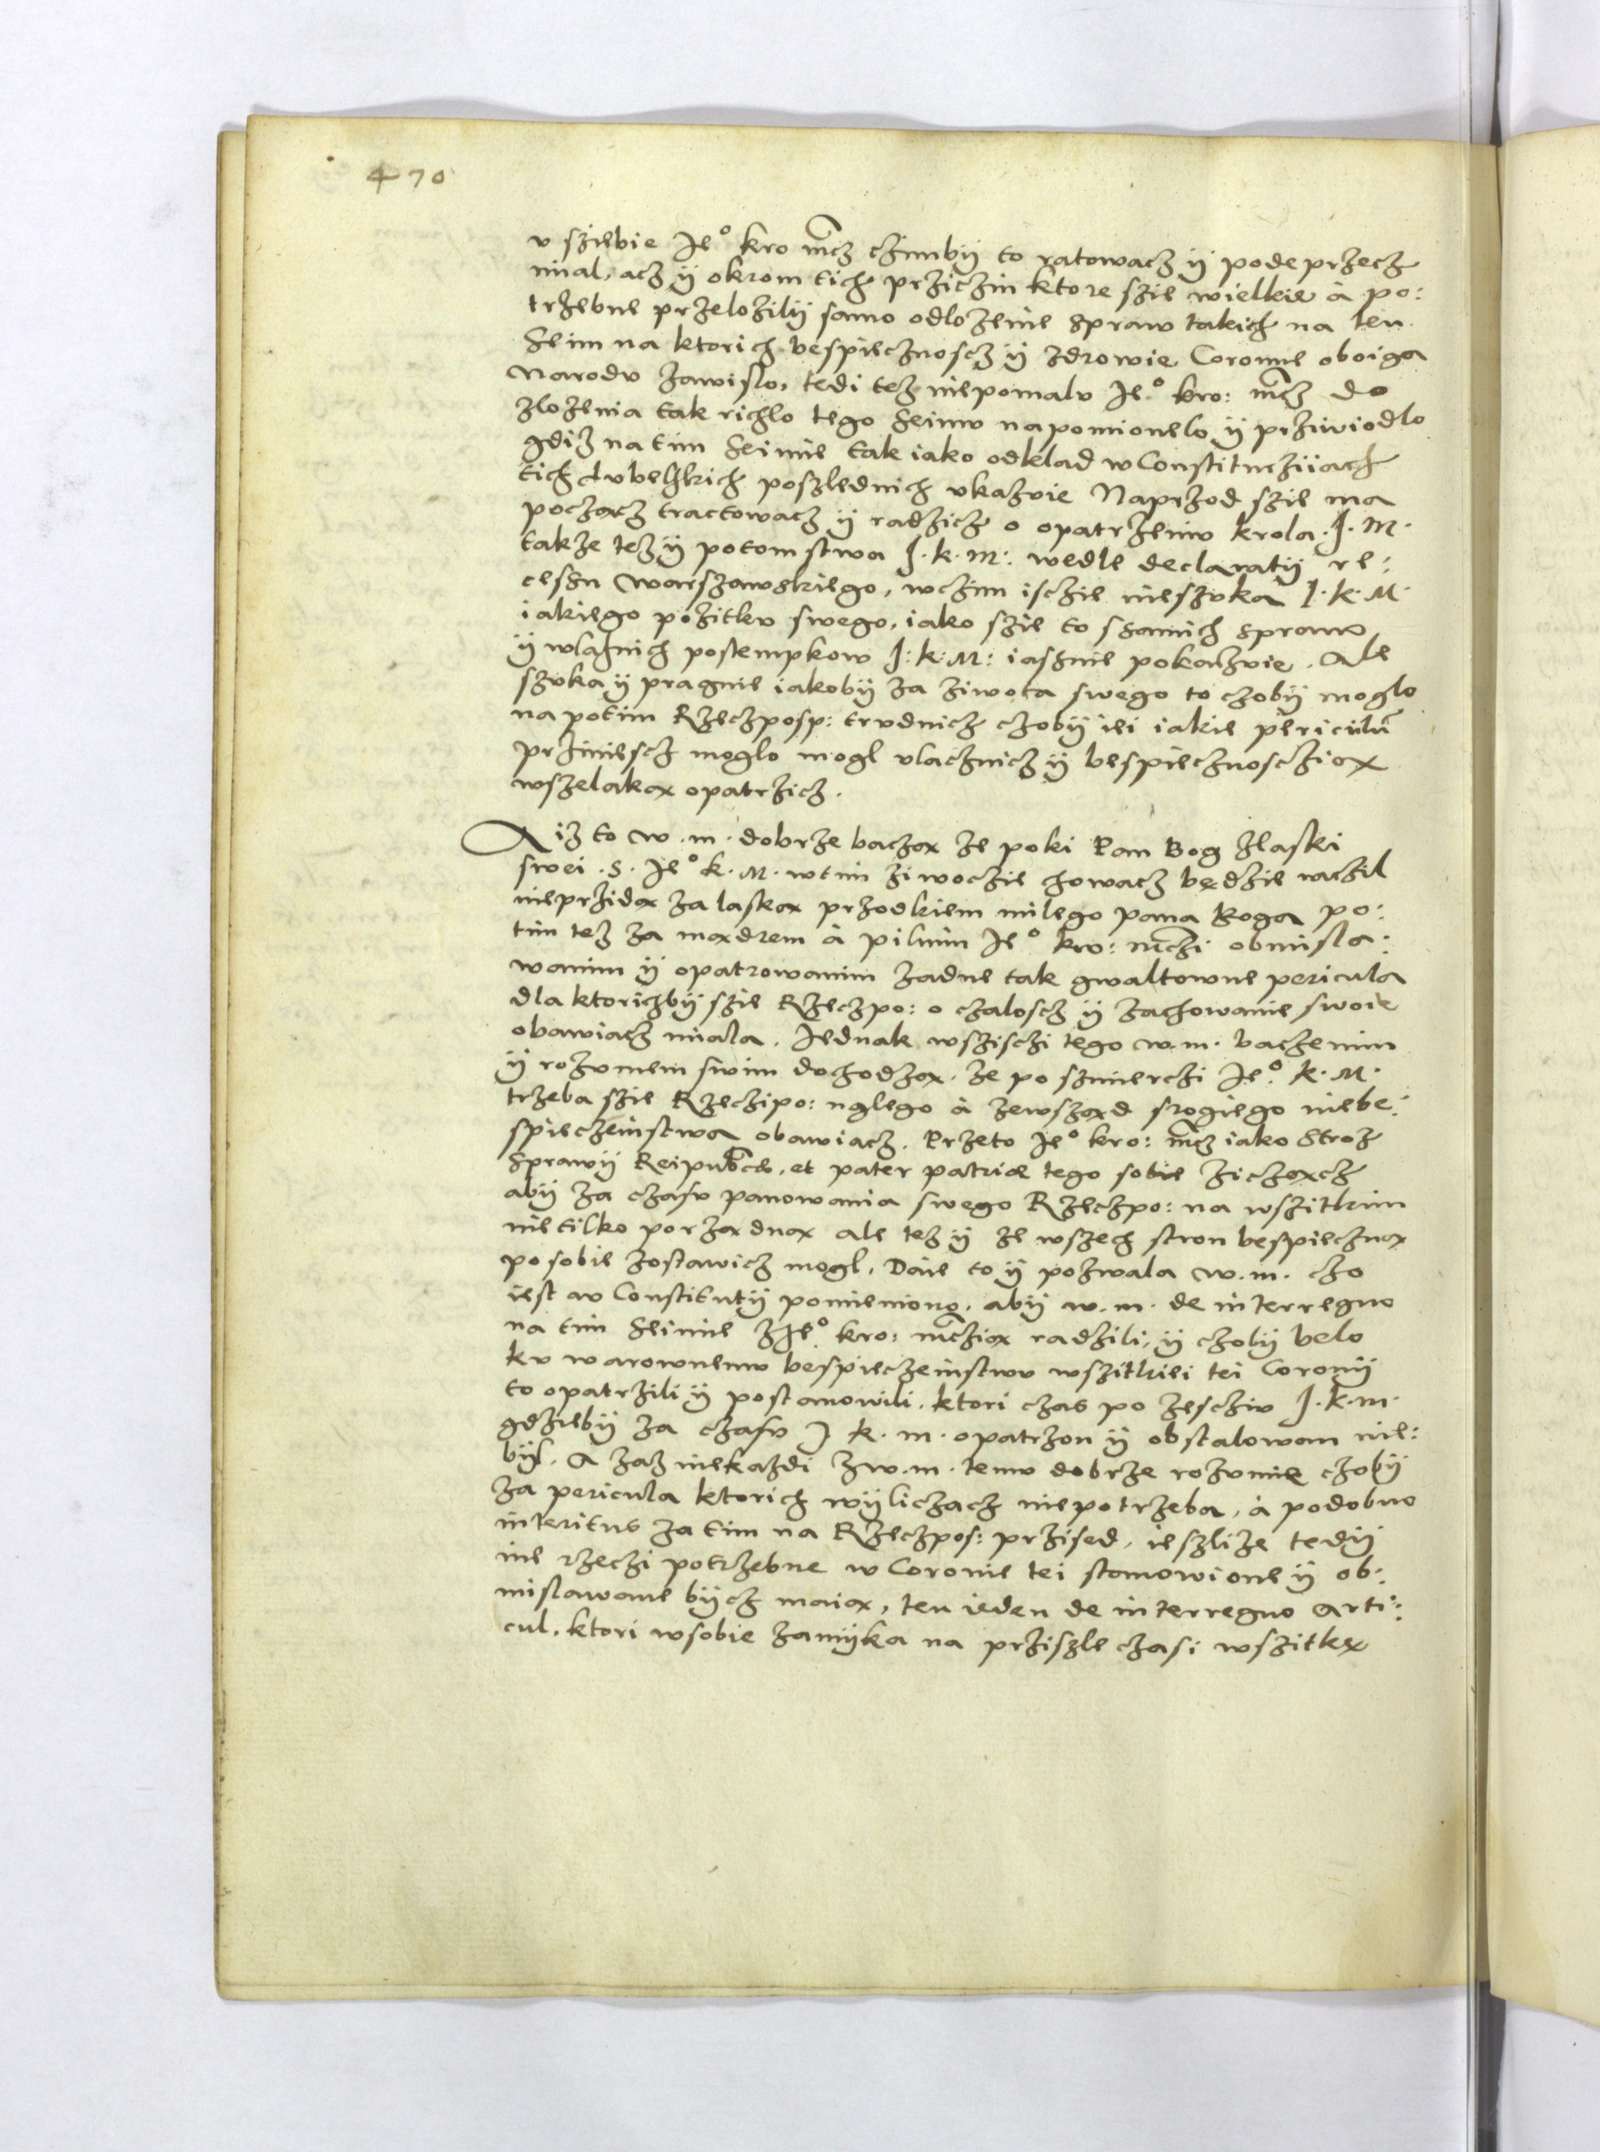 470
v sziebie Ie° kro mcz czimbÿ to ratowacz ÿ podeprzecz
mial, acz ÿ okrom tich prziczin ktore szie wielkie à po:
trzebne przelozilÿ samo odlozenie spraw takich na ten
Seim na ktorich bespiecznoscz ÿ zdrowie Coronne oboiga
Narodv zawislo, tedi tez niepomalv Ie° kro: mcz do
zlozenia tak richlo tego Seimv napomionelo ÿ prziwiodlo
gdiz na tim Seimie tak iako odklad w Constituciiach
tich Lvbelskich poszlednich vkazvie Naprzod szie ma
poczacz tractowacz ÿ radzicz o opatrzeniv krola J. M.
takze tez ÿ potomstwa J. k. M: wedle declaratÿ re:
cessu Warszawskiego, w czim isczie nieszvka J. k. M.
iakiego pozitkv swego, iako szie to ssamich spraw
ÿ wlasnich postempkow J: k: M: iassnie pokazvie. Ale
szvka ÿ pragnie iakobÿ za ziwota swego to czobÿ moglo
na potim Rzeczposp: trvdnicz czobÿ iei iakie periculum
prziniescz moglo mogl vlacznicz ÿ bespiecznoscziax
wszelakax opatrzicz.
A iz to w. m. dobrze baczax ze poki Pan Bog zlaski
swei .S. Ie° k. M. w tim ziwoczie chowacz będzie raczil
nieprzidax za laskax przodkiem milego pana Boga po:
tim tez za maxdrem à pilnim Ie° kro: mczi obmisla:
wanim ÿ opatrowanim zadne tak gwaltowne pericula
dla ktorichbÿ szie Rzeczpo: o czaloscz ÿ zachowanie swoie
obawiacz miala. Iednak wsziszczi tego w. m. baczenim
ÿ rozvmem swim dochodzax, ze po szmierczi Ie° k. M.
trzeba szie Rzeczipo: naglego à zewszaxd srogiego niebe:
spieczeinstwa obawiacz. Przeto Ie° kro: mcz iako Stroz
Sprawÿ Reipublicae, et pater patriae tego sobie ziczaxcz
abÿ za czasv panowania swego Rzeczpo: na wszitkim
nie tilko porzaxdnax ale tez ÿ ze wszech stron bespiecznax
po sobie zostawicz mogl, Daie to ÿ pozwala w. m. czo
iest w Constitutÿ pomieniono, abÿ w. m. de interregno
na tim Seimie z Ie° kro: mcziax radzili, ÿ czobÿ belo
kv warownemv bespieczeinstwv wszitkiei tei Coronÿ
to opatrzili ÿ postanowili, ktori czas po zeszciv J. k. m.
gdziebÿ za czasv J k. m. opatrzon ÿ obstalowan nie:
bÿl. A zaz niekazdi z w. m. temv dobrze rozvmie czobÿ
za pericula ktorich wÿliczacz niepotrzeba, à podobno
interitus za tim na Rzeczpos: prziszed, ieszlize tedÿ
ine rzeczi potrzebne w Coronie tei stanowione ÿ ob:
mislawane bÿcz maiax, ten ieden de interregno Arti:
cul, ktori w sobie zamÿka na prziszle czasi wszitkę